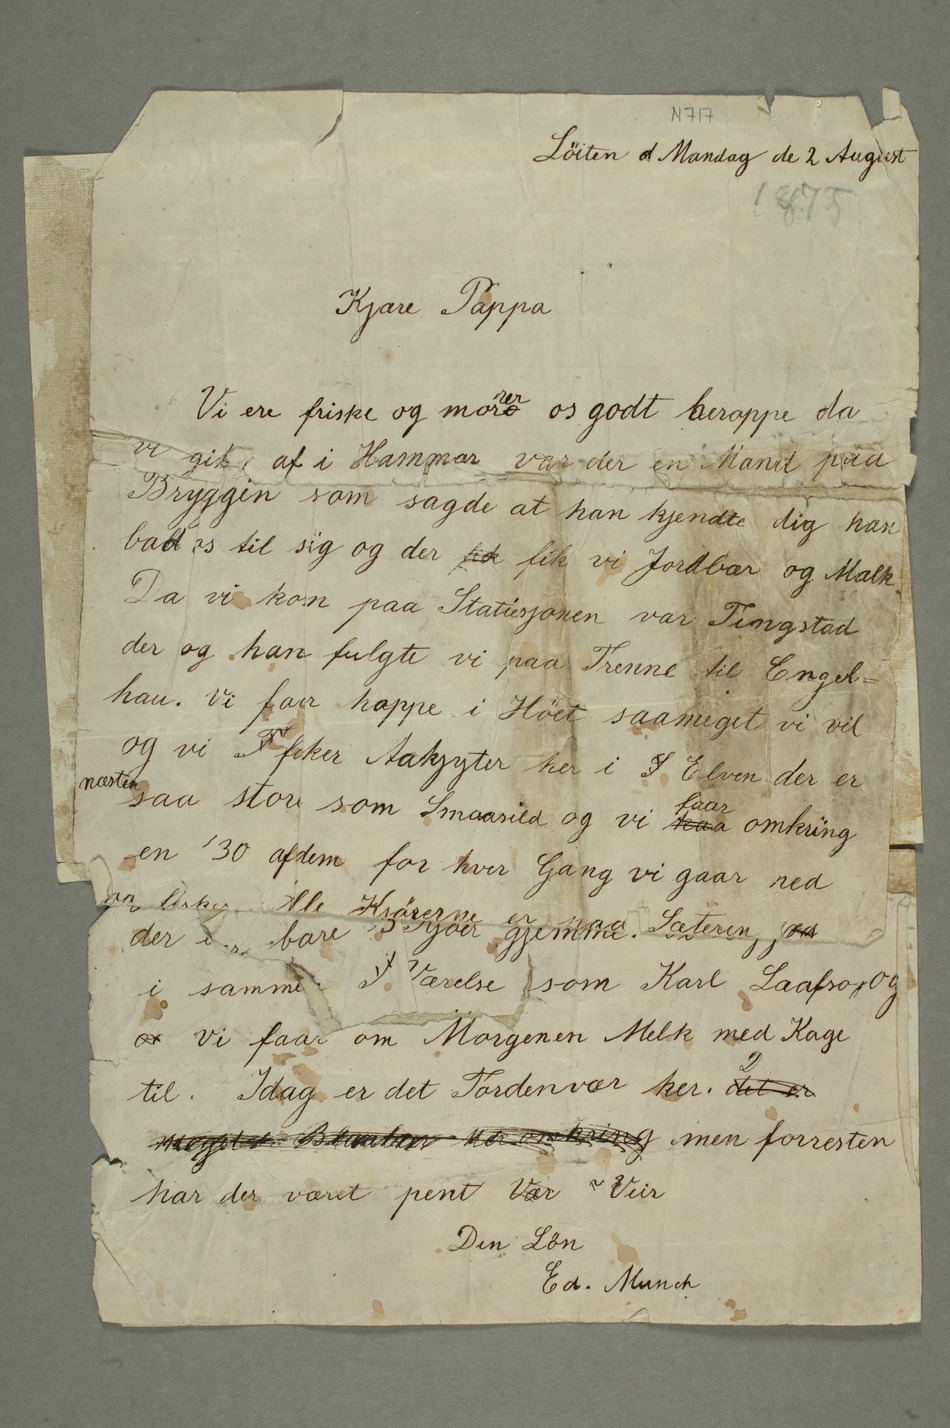 N 717
Löiten d Mandag de 2 August
1875
Kjære Pappa
Vi ere friske og morer os godt heroppe da
vi gik af i Hammar var der en Mand paa
Bryggen som sagde at han kjendte dig han
bad os til sig og der fik fik vi Jordbær og Mælk
Da vi kom paa Statiosjonen var Tingstad
der og han fulgte vi paa Trenne til Engel=
hau. Vi faar hoppe i Höet saameget vi vil
og vi Ffisker Aakjyter her i Elven der er
næsten saa store som Smaasild og vi faar omkring
en 30 afdem for hver Gang vi gaar ned
og fisker Alle Kjörerne er paa Sæteren,
der er bare 3 Kjöer hjemme.
i samme Værelse som Karl og
vi faar om Morgenen Melk med Kage
til. Idag er det Tordenvær her. det er
meget Blaabær her omkring men forresten
har der været pent Vær Veir
Din Sön
Ed. Munch